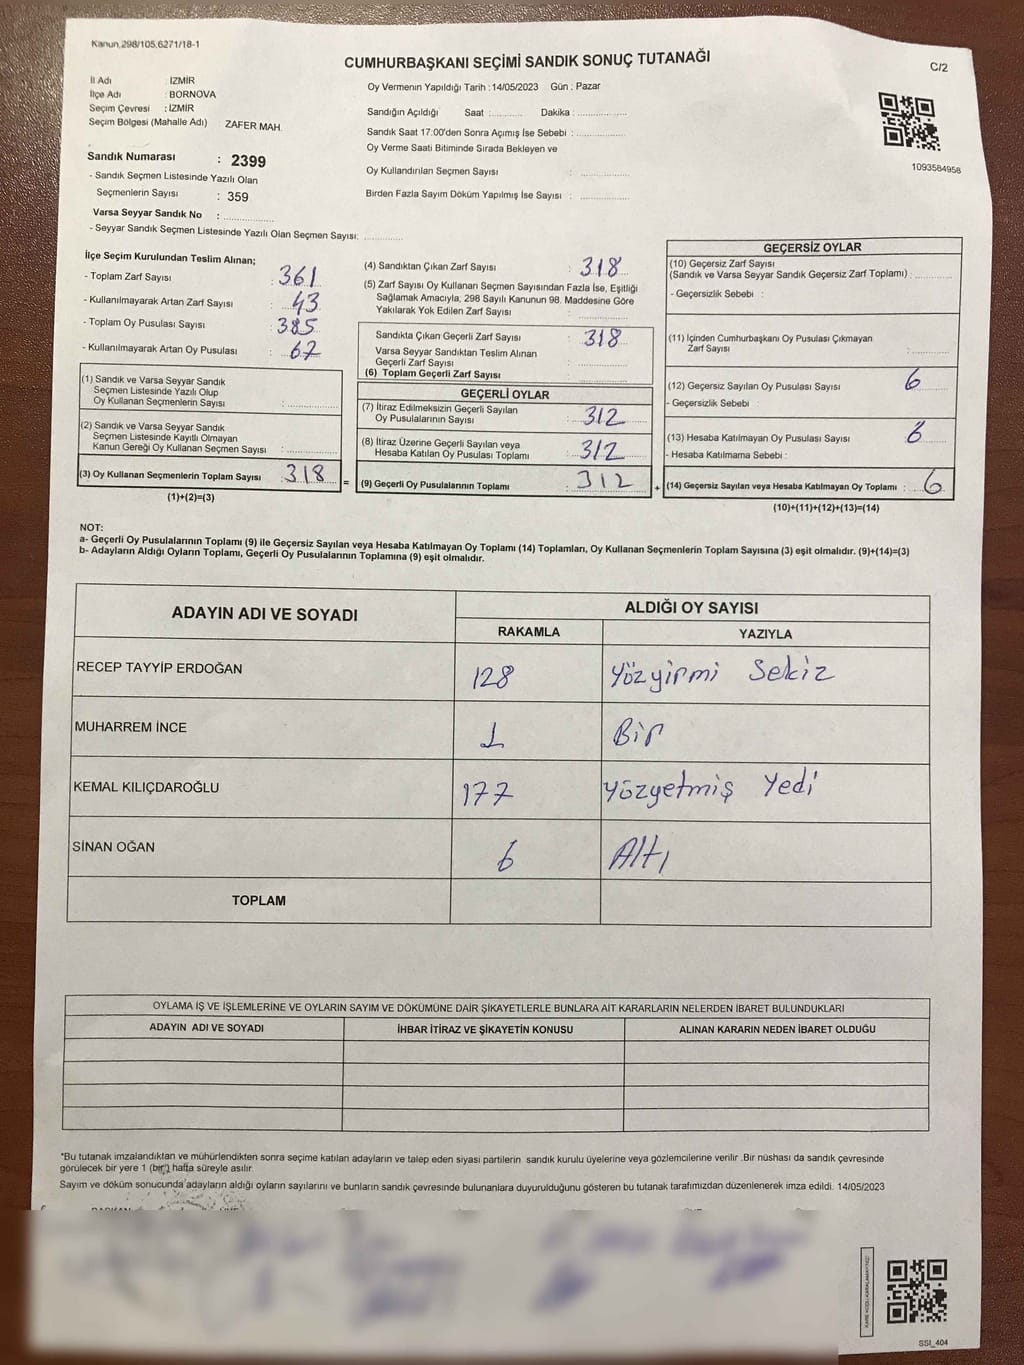 Kanun.298/105.6271/18-1
CUMHURBAŞKANI SEÇİMİ SANDIK SONUÇ TUTANAĞI
C/2
İl Adı : İZMİR
İlçe Adı : BORNOVA
Seçim Çevresi : İZMİR
Seçim Bölgesi (Mahalle Adı) : ZAFER MAH.
Sandık Numarası : 2399
- Sandık Seçmen Listesinde Yazılı Olan
Seçmenlerin Sayısı : 359
Varsa Seyyar Sandık No : ..............
- Seyyar Sandık Seçmen Listesinde Yazılı Olan Seçmen Sayısı: ............
Oy Vermenin Yapıldığı Tarih :14/05/2023 Gün : Pazar
Sandığın Açıldığı Saat :........... Dakika : ................
Sandık Saat 17:00'den Sonra Açımış İse Sebebi : ...............
Oy Verme Saati Bitiminde Sırada Bekleyen ve
Oy Kullandırılan Seçmen Sayısı : ...............
Birden Fazla Sayım Döküm Yapılmış İse Sayısı : ...............
1093584958
İlçe Seçim Kurulundan Teslim Alınan;
- Toplam Zarf Sayısı : 361
- Kullanılmayarak Artan Zarf Sayısı : 43
- Toplam Oy Pusulası Sayısı : 385
- Kullanılmayarak Artan Oy Pusulası : 67
(1) Sandık ve Varsa Seyyar Sandık
Seçmen Listesinde Yazılı Olup
Oy Kullanan Seçmenlerin Sayısı : ...............
(2) Sandık ve Varsa Seyyar Sandık
Seçmen Listesinde Kayıtlı Olmayan
Kanun Gereği Oy Kullanan Seçmen Sayısı : ...............
(3) Oy Kullanan Seçmenlerin Toplam Sayısı : 318 =
(1)+(2)=(3)
(4) Sandıktan Çıkan Zarf Sayısı : 318
(5) Zarf Sayısı Oy Kullanan Seçmen Sayısından Fazla İse, Eşitliği
Sağlamak Amacıyla; 298 Sayılı Kanunun 98. Maddesine Göre
Yakılarak Yok Edilen Zarf Sayısı : ...............
Sandıkta Çıkan Geçerli Zarf Sayısı : 318
Varsa Seyyar Sandıktan Teslim Alınan
Geçerli Zarf Sayısı : ...............
(6) Toplam Geçerli Zarf Sayısı : ...............
GEÇERLİ OYLAR
(7) İtiraz Edilmeksizin Geçerli Sayılan
Oy Pusulalarının Sayısı : 312
(8) İtiraz Üzerine Geçerli Sayılan veya
Hesaba Katılan Oy Pusulası Toplamı : 312
(9) Geçerli Oy Pusulalarının Toplamı : 312 +
GEÇERSİZ OYLAR
(10) Geçersiz Zarf Sayısı
(Sandık ve Varsa Seyyar Sandık Geçersiz Zarf Toplamı) : ............
- Geçersizlik Sebebi :
(11) İçinden Cumhurbaşkanı Oy Pusulası Çıkmayan
Zarf Sayısı : ............
(12) Geçersiz Sayılan Oy Pusulası Sayısı : 6
- Geçersizlik Sebebi :
(13) Hesaba Katılmayan Oy Pusulası Sayısı : 6
- Hesaba Katılmama Sebebi :
(14) Geçersiz Sayılan veya Hesaba Katılmayan Oy Toplamı : 6
(10)+(11)+(12)+(13)=(14)
NOT:
a- Geçerli Oy Pusulalarının Toplamı (9) ile Geçersiz Sayılan veya Hesaba Katılmayan Oy Toplamı (14) Toplamları, Oy Kullanan Seçmenlerin Toplam Sayısına (3) eşit olmalıdır. (9)+(14)=(3)
b- Adayların Aldığı Oyların Toplamı, Geçerli Oy Pusulalarının Toplamına (9) eşit olmalıdır.
ADAYIN ADI VE SOYADI
ALDIĞI OY SAYISI
RAKAMLA YAZIYLA
RECEP TAYYİP ERDOĞAN 128 Yüzyirmi Sekiz
MUHARREM İNCE 1 Bir
KEMAL KILIÇDAROĞLU 177 Yüzyetmiş Yedi
SİNAN OĞAN 6 Altı
TOPLAM
OYLAMA İŞ VE İŞLEMLERİNE VE OYLARIN SAYIM VE DÖKÜMÜNE DAİR ŞİKAYETLERLE BUNLARA AİT KARARLARIN NELERDEN İBARET BULUNDUKLARI
ADAYIN ADI VE SOYADI İHBAR İTİRAZ VE ŞİKAYETİN KONUSU ALINAN KARARIN NEDEN İBARET OLDUĞU
*Bu tutanak imzalandıktan ve mühürlendikten sonra seçime katılan adayların ve talep eden siyasi partilerin sandık kurulu üyelerine veya gözlemcilerine verilir .Bir nüshası da sandık çevresinde
görülecek bir yere 1 (bir) hafta süreyle asılır.
Sayım ve döküm sonucunda adayların aldığı oyların sayılarını ve bunların sandık çevresinde bulunanlara duyurulduğunu gösteren bu tutanak tarafımızdan düzenlenerek imza edildi. 14/05/2023
SSİ_404